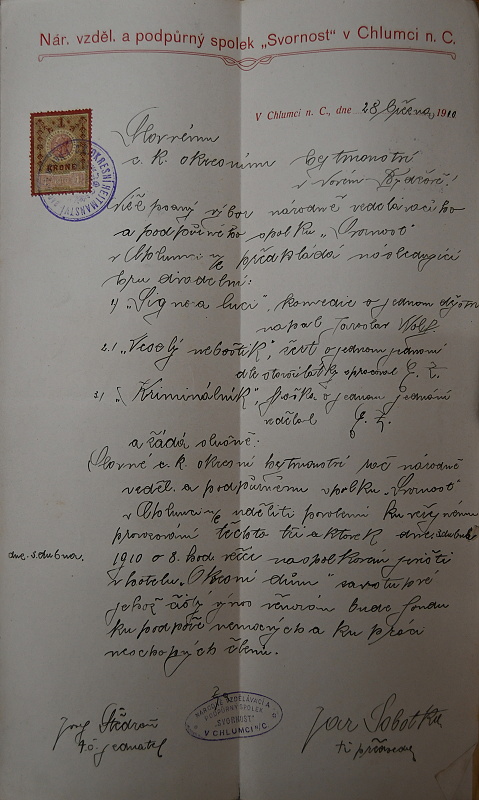 Nár. vzděl. a podpůrný spolek „Svornost" v Chlumci n. C.
V Chlumci n. C., dne 28 března 1910
1
KRONE
OKRESNÍ HEJTMANSTVÍ
Slavnému
c. k. okresnímu hejtmanství
v Novém Bydžově!
Níže psaný výbor národně vzdělávacího
a podpůrného spolku „Svornost"
v Chlumci n/C předkládá následující
hru divadelní:
1) „Sig nora luci", komedie o jednom
napsal Jaroslav Wolf.
2.) „Veselý nebožtík", žert o jednom jednání
dle starší látky zpracoval E. Ž.
3.) „Kriminálník", fraška o jednom jednání
vzdělal E. Ž.
a žádá slušně:
Slavné c. k. okresní hejtmanství račiž národně
vzděl. a podpůrnému spolku „Svornost"
v Chlumci n/C uděliti povolení ku veřejnému
provozování těchto tří aktovek dne 3. dubna
dne 3. dubna.
1910 o 8. hod. večer na spolkovém jevišti
v hotelu „Okresní dům"
jehož čistý výnos věnován bude fondu
ku podpoře nemocných a ku práci
neschopných členů.
NÁRODNĚ VZDĚLÁVACÍ A
PODPŮRNÝ SPOLEK
„SVORNOST"
V CHLUMCI N/C
Josef Štědroň
t. č. jednatel
Jar Sobotka
t. č. předseda